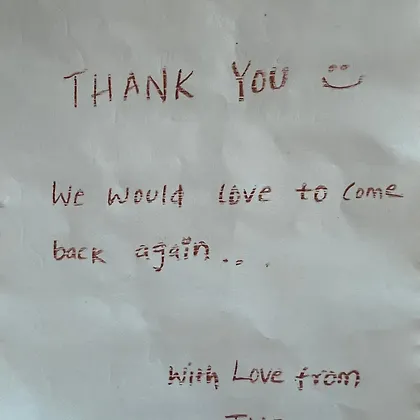 THANK YOU
We would love to come
back again...
With Love from